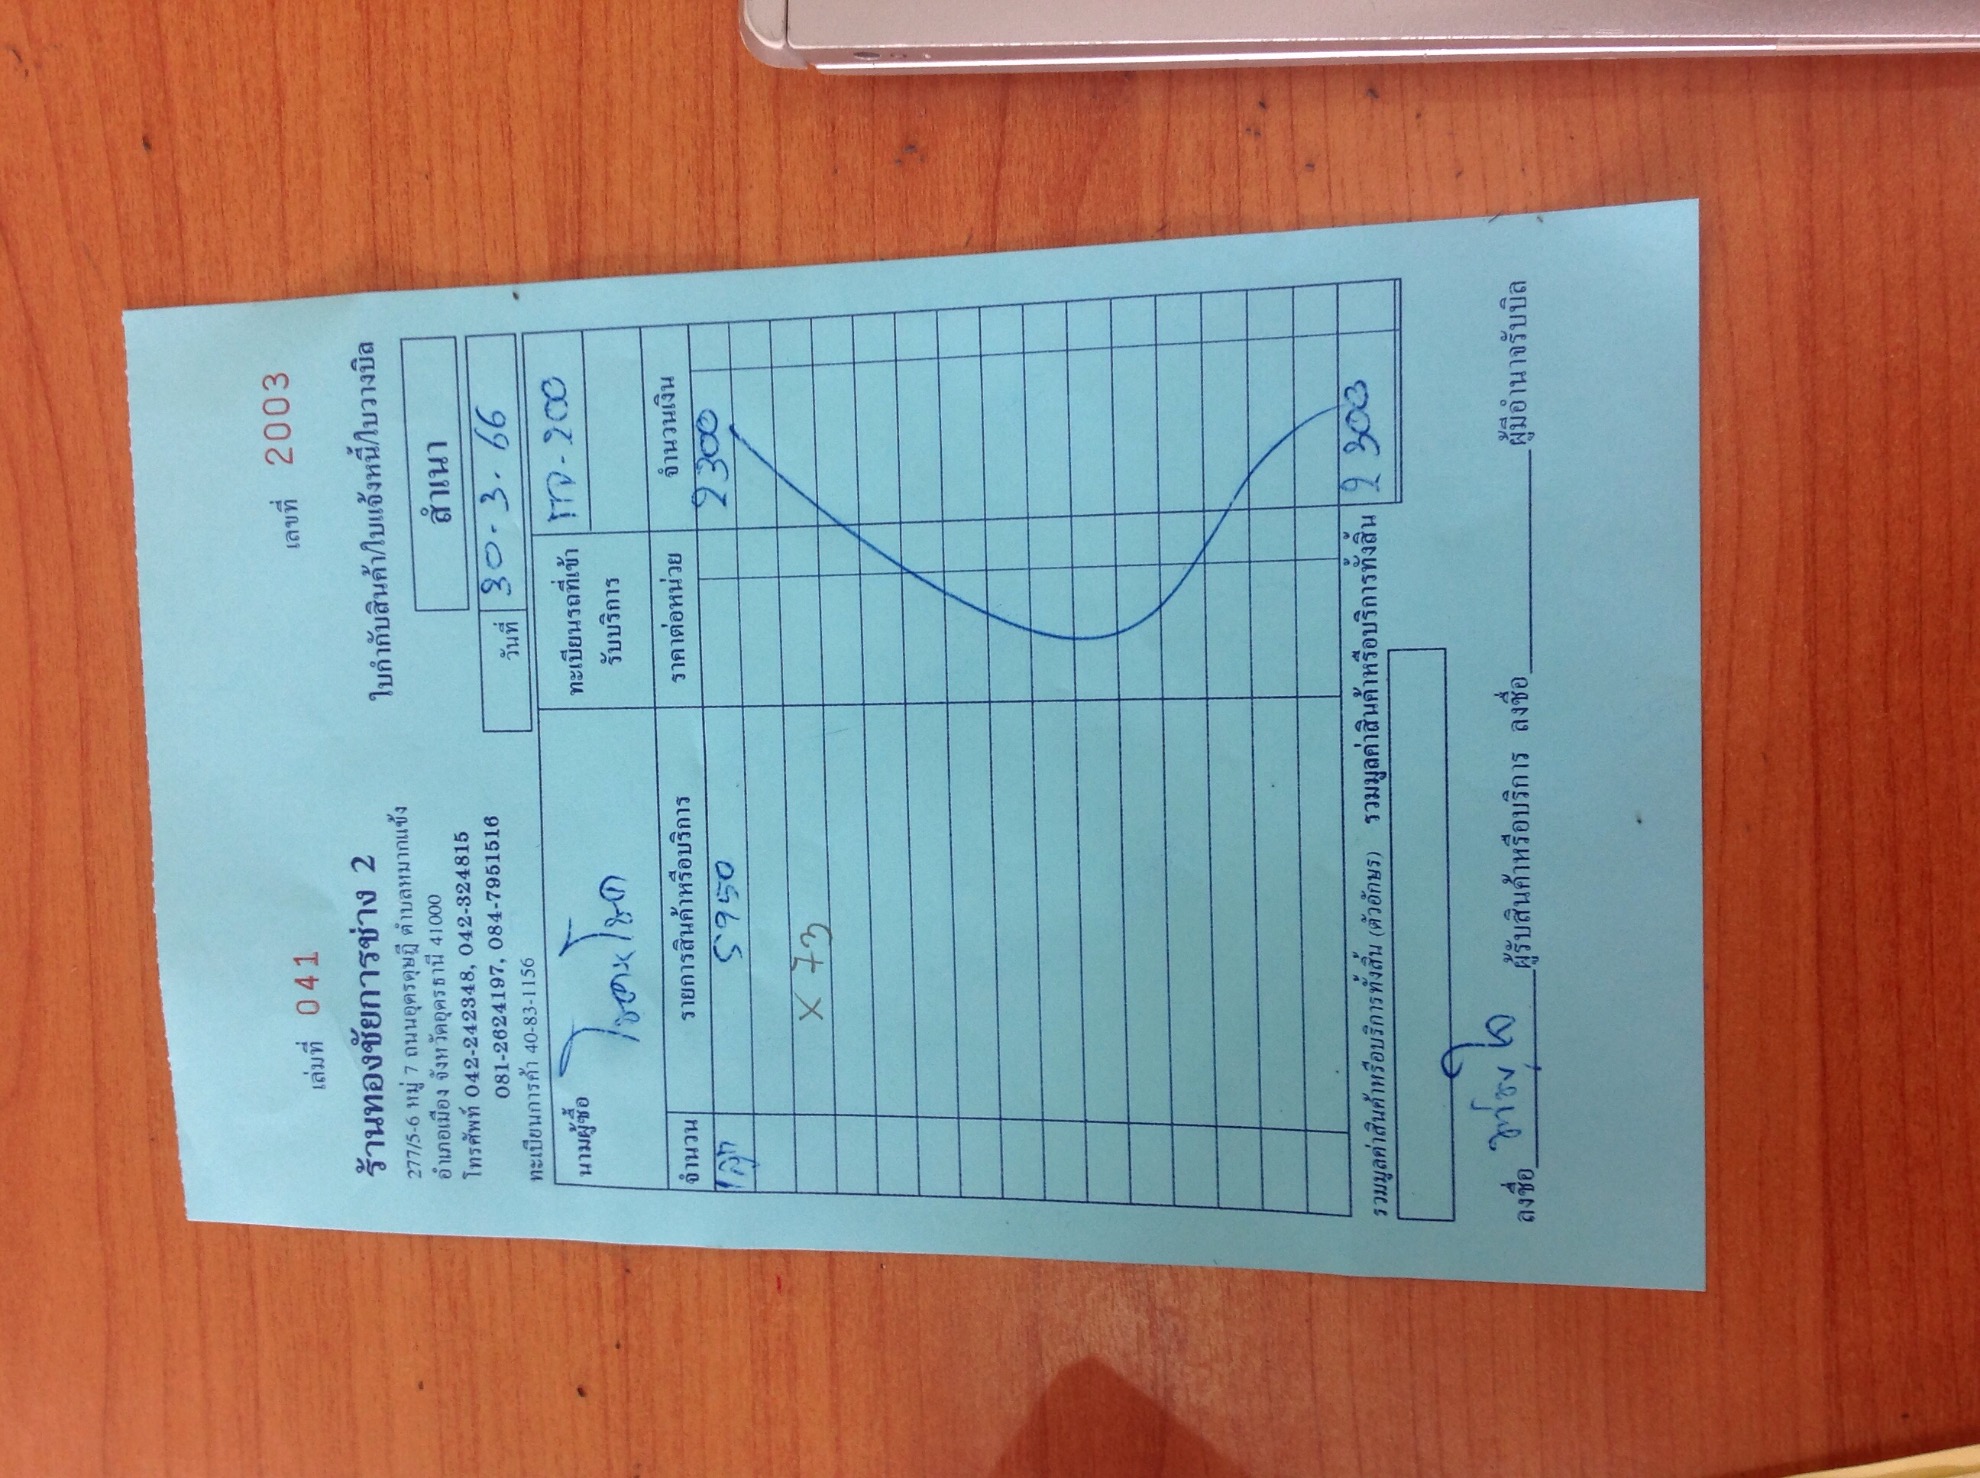 เล่มที่ 041 เลขที่ 2003
ร้านทองชัยการช่าง 2 ใบกำกับสินค้า/ใบแจ้งหนี้/ใบวางบิล
277/5-6 หมู่ 7 ถนนอุดรดุษฎี ตำบลหมากแข้ง
อำเภอเมือง จังหวัดอุดรธานี 41000
สำเนา
โทรศัพท์ 042-242348, 042-324815
081-2624197, 084-7951516
วันที่ 30.3.66
ทะเบียนการค้า 40-83-1156
นามผู้ซื้อ
ทะเบียนรถที่เข้า
รับบริการ
จำนวน รายการสินค้าหรือบริการ ราคาต่อหน่วย จำนวนเงิน
1 ลูก 5950 2300
x 73
รวมมูลค่าสินค้าหรือบริการทั้งสิ้น (ตัวอักษร) รวมมูลค่าสินค้าหรือบริการทั้งสิ้น 2300
ลงชื่อ ผู้รับสินค้าหรือบริการ ลงชื่อ ผู้มีอำนาจรับบิล